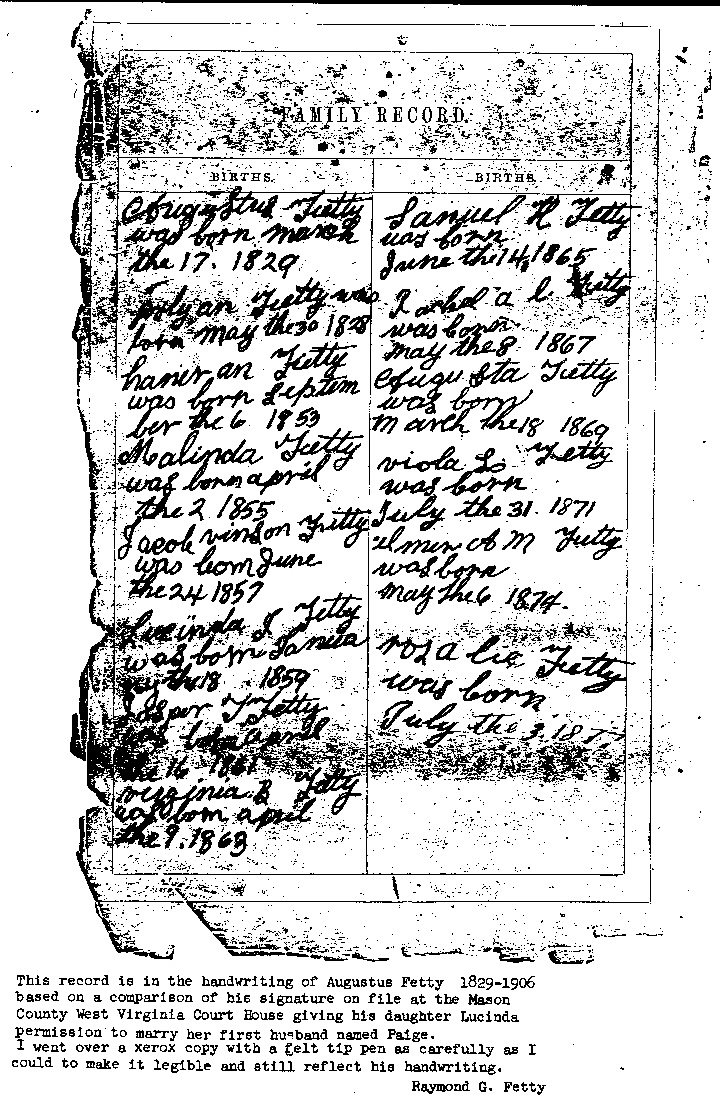 FAMILY RECORD.
BIRTHS.
Augustus Fetty
was born march
the 17. 1829
an Fetty was
born may the 30 1828
an Fetty
was born Septem
ber the 6 1853
Malinda Fetty
was born april
the 2 1855
Jacob vinson Fetty
was born June
the 24 1857
Lucinda J Fetty
was born Janua
ry the 18 1859
Jasper T Fetty
was born april
the 16 1861
virginia Fetty
was born april
the 9. 1863
BIRTHS.
Samuel H Fetty
was born
June the 14, 1865
a l Fetty
was born
may the 8 1867
Augusta Fetty
was born
march the 18 1869
viola Fetty
was born
July the 31. 1871
elmer A M Fetty
was born
may the 6 1874.
rosa lie Fetty
was born
July the 3.
This record is in the handwriting of Augustus Fetty 1829-1906
based on a comparison of his signature on file at the Mason
County West Virginia Court House giving his daughter Lucinda
permission to marry her first husband named Paige.
I went over a xerox copy with a felt tip pen as carefully as I
could to make it legible and still reflect his handwriting.
Raymond G. Fetty